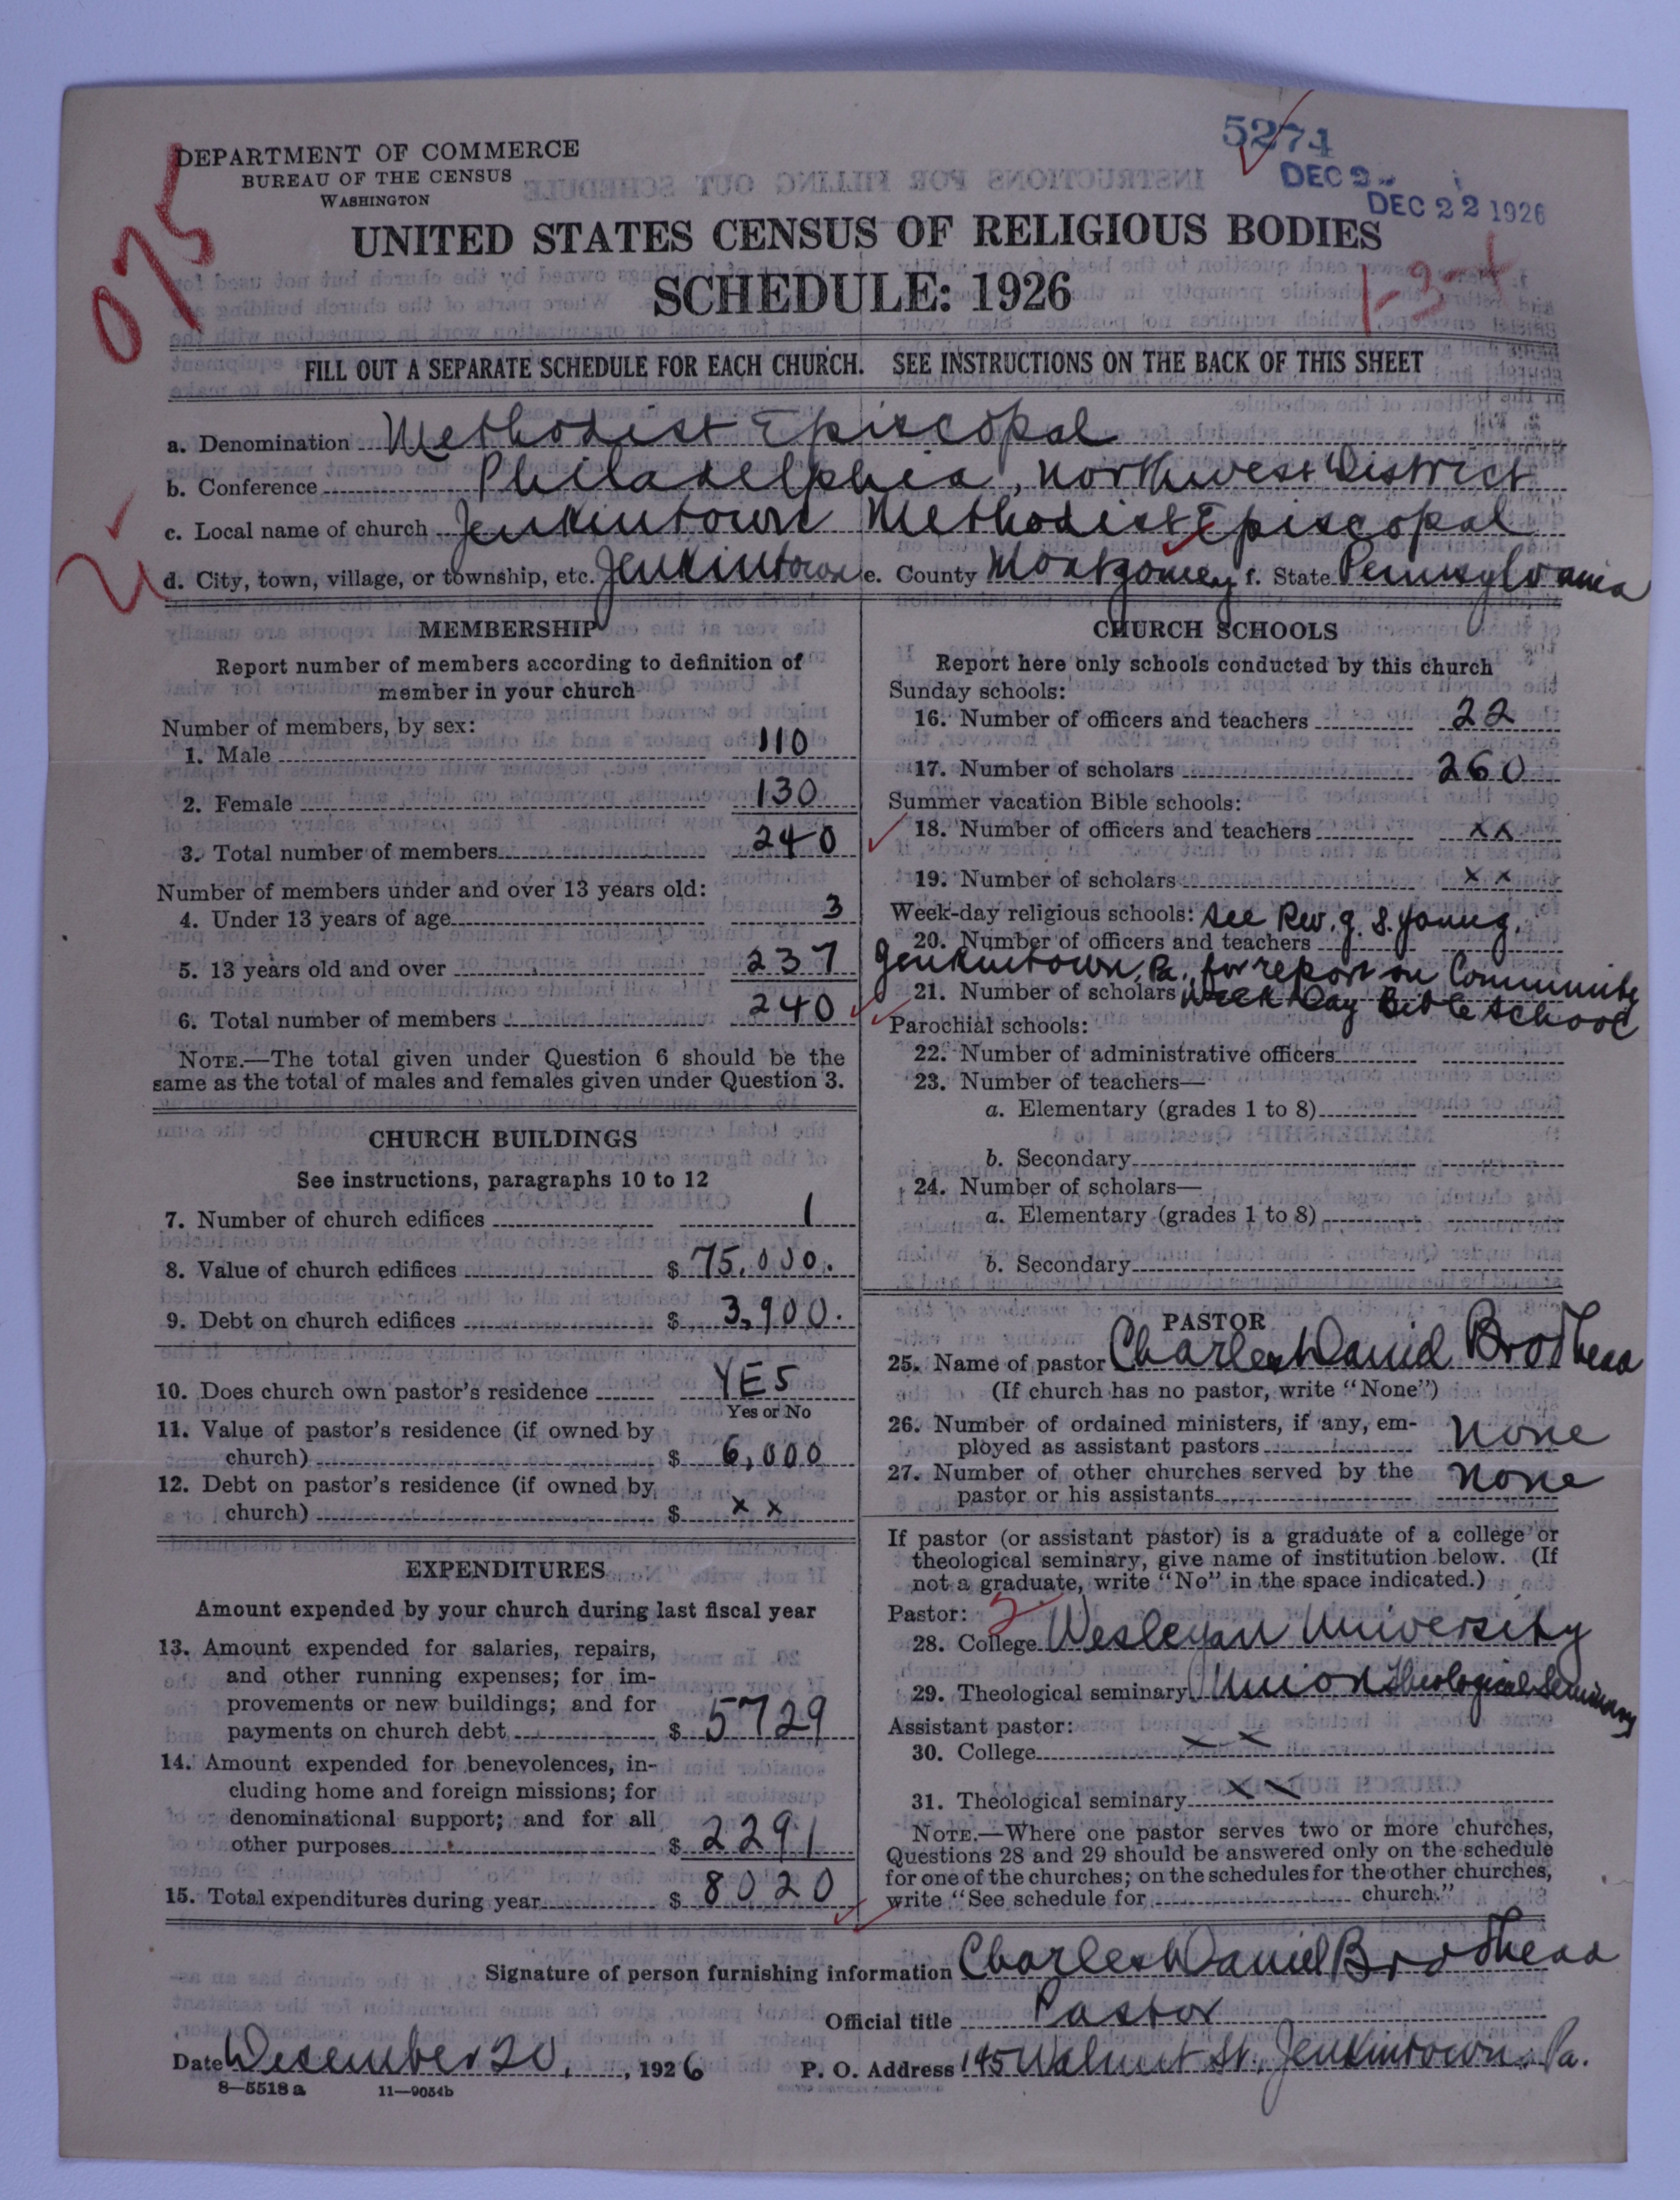 5274
DEPARTMENT OF COMMERCE
BUREAU OF THE CENSUS
WASHINGTON
DEC 2
DEC 22 1926
075
UNITED STATES CENSUS OF RELIGIOUS BODIES
SCHEDULE: 1926
1-3-+
FILL OUT A SEPARATE SCHEDULE FOR EACH CHURCH. SEE INSTRUCTIONS ON THE BACK OF THIS SHEET
a. Denomination Methodist Episcopal
b. Conference Philadelphia, Northwest District
c. Local name of church Jenkintown Methodist Episcopal
d. City, town, village, or township, etc. Jenkintown e. County Montgomery f. State Pennsylvania
MEMBERSHIP
Report number of members according to definition of
member in your church
Number of members, by sex:
1. Male 110
2. Female 130
3. Total number of members 240
Number of members under and over 13 years old:
4. Under 13 years of age 3
5. 13 years old and over 237
6. Total number of members 240
NOTE.—The total given under Question 6 should be the
same as the total of males and females given under Question 3.
CHURCH BUILDINGS
See instructions, paragraphs 10 to 12
7. Number of church edifices 1
8. Value of church edifices $ 75,000.
9. Debt on church edifices $ 3,900.
10. Does church own pastor's residence YES
Yes or No
11. Value of pastor's residence (if owned by
church) $ 6,000
12. Debt on pastor's residence (if owned by
church) $ x x
EXPENDITURES
Amount expended by your church during last fiscal year
13. Amount expended for salaries, repairs,
and other running expenses; for im-
provements or new buildings; and for
payments on church debt $ 5729
14. Amount expended for benevolences, in-
cluding home and foreign missions; for
denominational support; and for all
other purposes $ 2291
15. Total expenditures during year $ 8020
CHURCH SCHOOLS
Report here only schools conducted by this church
Sunday schools:
16. Number of officers and teachers 22
17. Number of scholars 260
Summer vacation Bible schools:
18. Number of officers and teachers xx
19. Number of scholars xx
Week-day religious schools: See Rev. G. S. Young,
20. Number of officers and teachers
Jenkintown, Pa., for report on Community
21. Number of scholars Week Day Bible School
Parochial schools:
22. Number of administrative officers
23. Number of teachers—
a. Elementary (grades 1 to 8)
b. Secondary
24. Number of scholars—
a. Elementary (grades 1 to 8)
b. Secondary
PASTOR
25. Name of pastor Charles Daniel Brodhead
(If church has no pastor, write "None")
26. Number of ordained ministers, if any, em-
ployed as assistant pastors None
27. Number of other churches served by the
pastor or his assistants None
If pastor (or assistant pastor) is a graduate of a college or
theological seminary, give name of institution below. (If
not a graduate, write "No" in the space indicated.)
Pastor: 2
28. College Wesleyan University
29. Theological seminary Union Theological Seminary
Assistant pastor:
30. College x x
31. Theological seminary x x
NOTE.—Where one pastor serves two or more churches,
Questions 28 and 29 should be answered only on the schedule
for one of the churches; on the schedules for the other churches,
write "See schedule for church."
Signature of person furnishing information Charles Daniel Brodhead
Official title Pastor
Date December 20, , 1926 P. O. Address 145 Walnut St. Jenkintown, Pa.
8—5518 a 11—9054b